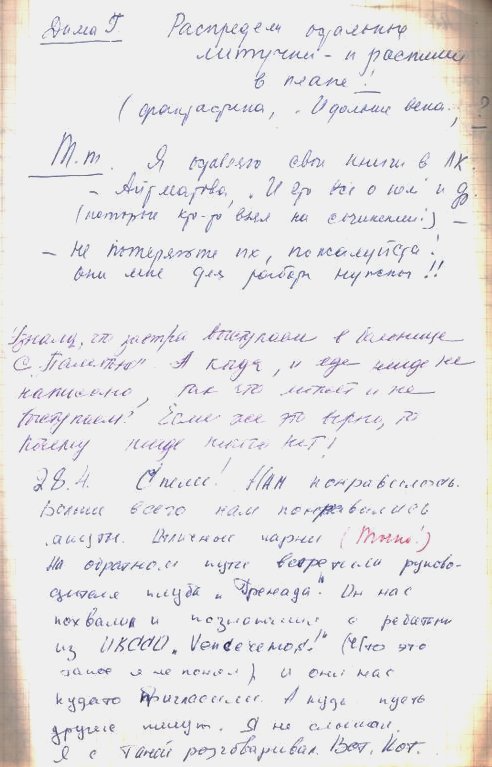 Дима Г. Распредели остальные
летучки - и распиши
в плане!
(фантастика, "И дольше века.., ?
Т.т. Я оставляю свои книги в ЛК.
- Айтматова, "И это все о нем" и др.
(которые кто-то взял на сочинение!) -
- не потеряйте их, пожалуйста!
они мне для работы нужны!!
Узнали, что завтра выступаем в больнице
с "Памятью". А когда, и где нигде не
написано, так что может и не
выступаем? Если же это верно, то
почему нигде никого нет!
28.4. Спели! Нам понравилось.
Больше всего нам понравились
Отличные парни (Точно!)
На обратном пути встретили руково-
дителя клуба "Гренада". Он нас
похвалил и познакомил с ребятами
из (Что это
такое я не понял) и они нас
куда-то пригласили. А куда пусть
другие пишут. Я не слышал.
Я с Таней разговаривал. Вот. Кот.